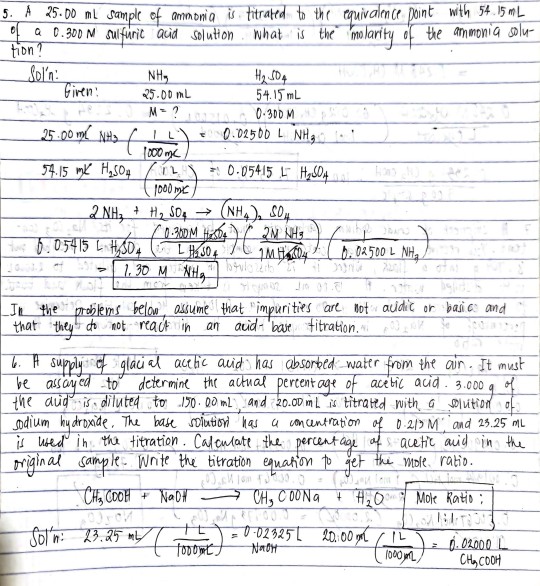 5. A 25.00 mL sample of ammonia is titrated to the equivalence point with 54.15 mL
of a 0.300 M sulfuric acid solution. What is the molarity of the ammonia solu-
tion?
Sol'n: NH3 H2SO4
Given: 25.00 mL 54.15 mL
M = ? 0.300 M
25.00 mL NH3 ( 1 L / 1000 mL ) = 0.02500 L NH3
54.15 mL H2SO4 ( 1 L / 1000 mL ) = 0.05415 L H2SO4
2 NH3 + H2SO4 → (NH4)2 SO4
0.05415 L H2SO4 ( 0.300M H2SO4 / L H2SO4 ) ( 2M NH3 / 1M H2SO4 ) ( 1 / 0.02500 L NH3 )
= 1.30 M NH3
In the problems below, assume that impurities are not acidic or basic and
that they do not react in an acid-base titration.
6. A supply of glacial acetic acid has absorbed water from the air. It must
be assayed to determine the actual percentage of acetic acid. 3.000 g of
the acid is diluted to 150.00 mL, and 20.00 mL is titrated with a solution of
sodium hydroxide. The base solution has a concentration of 0.215 M, and 23.25 mL
is used in the titration. Calculate the percentage of acetic acid in the
original sample. Write the titration equation to get the mole ratio.
CH3COOH + NaOH → CH3COONa + H2O Mole Ratio :
1:1
Sol'n: 23.25 mL ( 1 L / 1000 mL ) = 0.02325 L NaOH 20.00 mL ( 1 L / 1000 mL ) = 0.02000 L CH3COOH